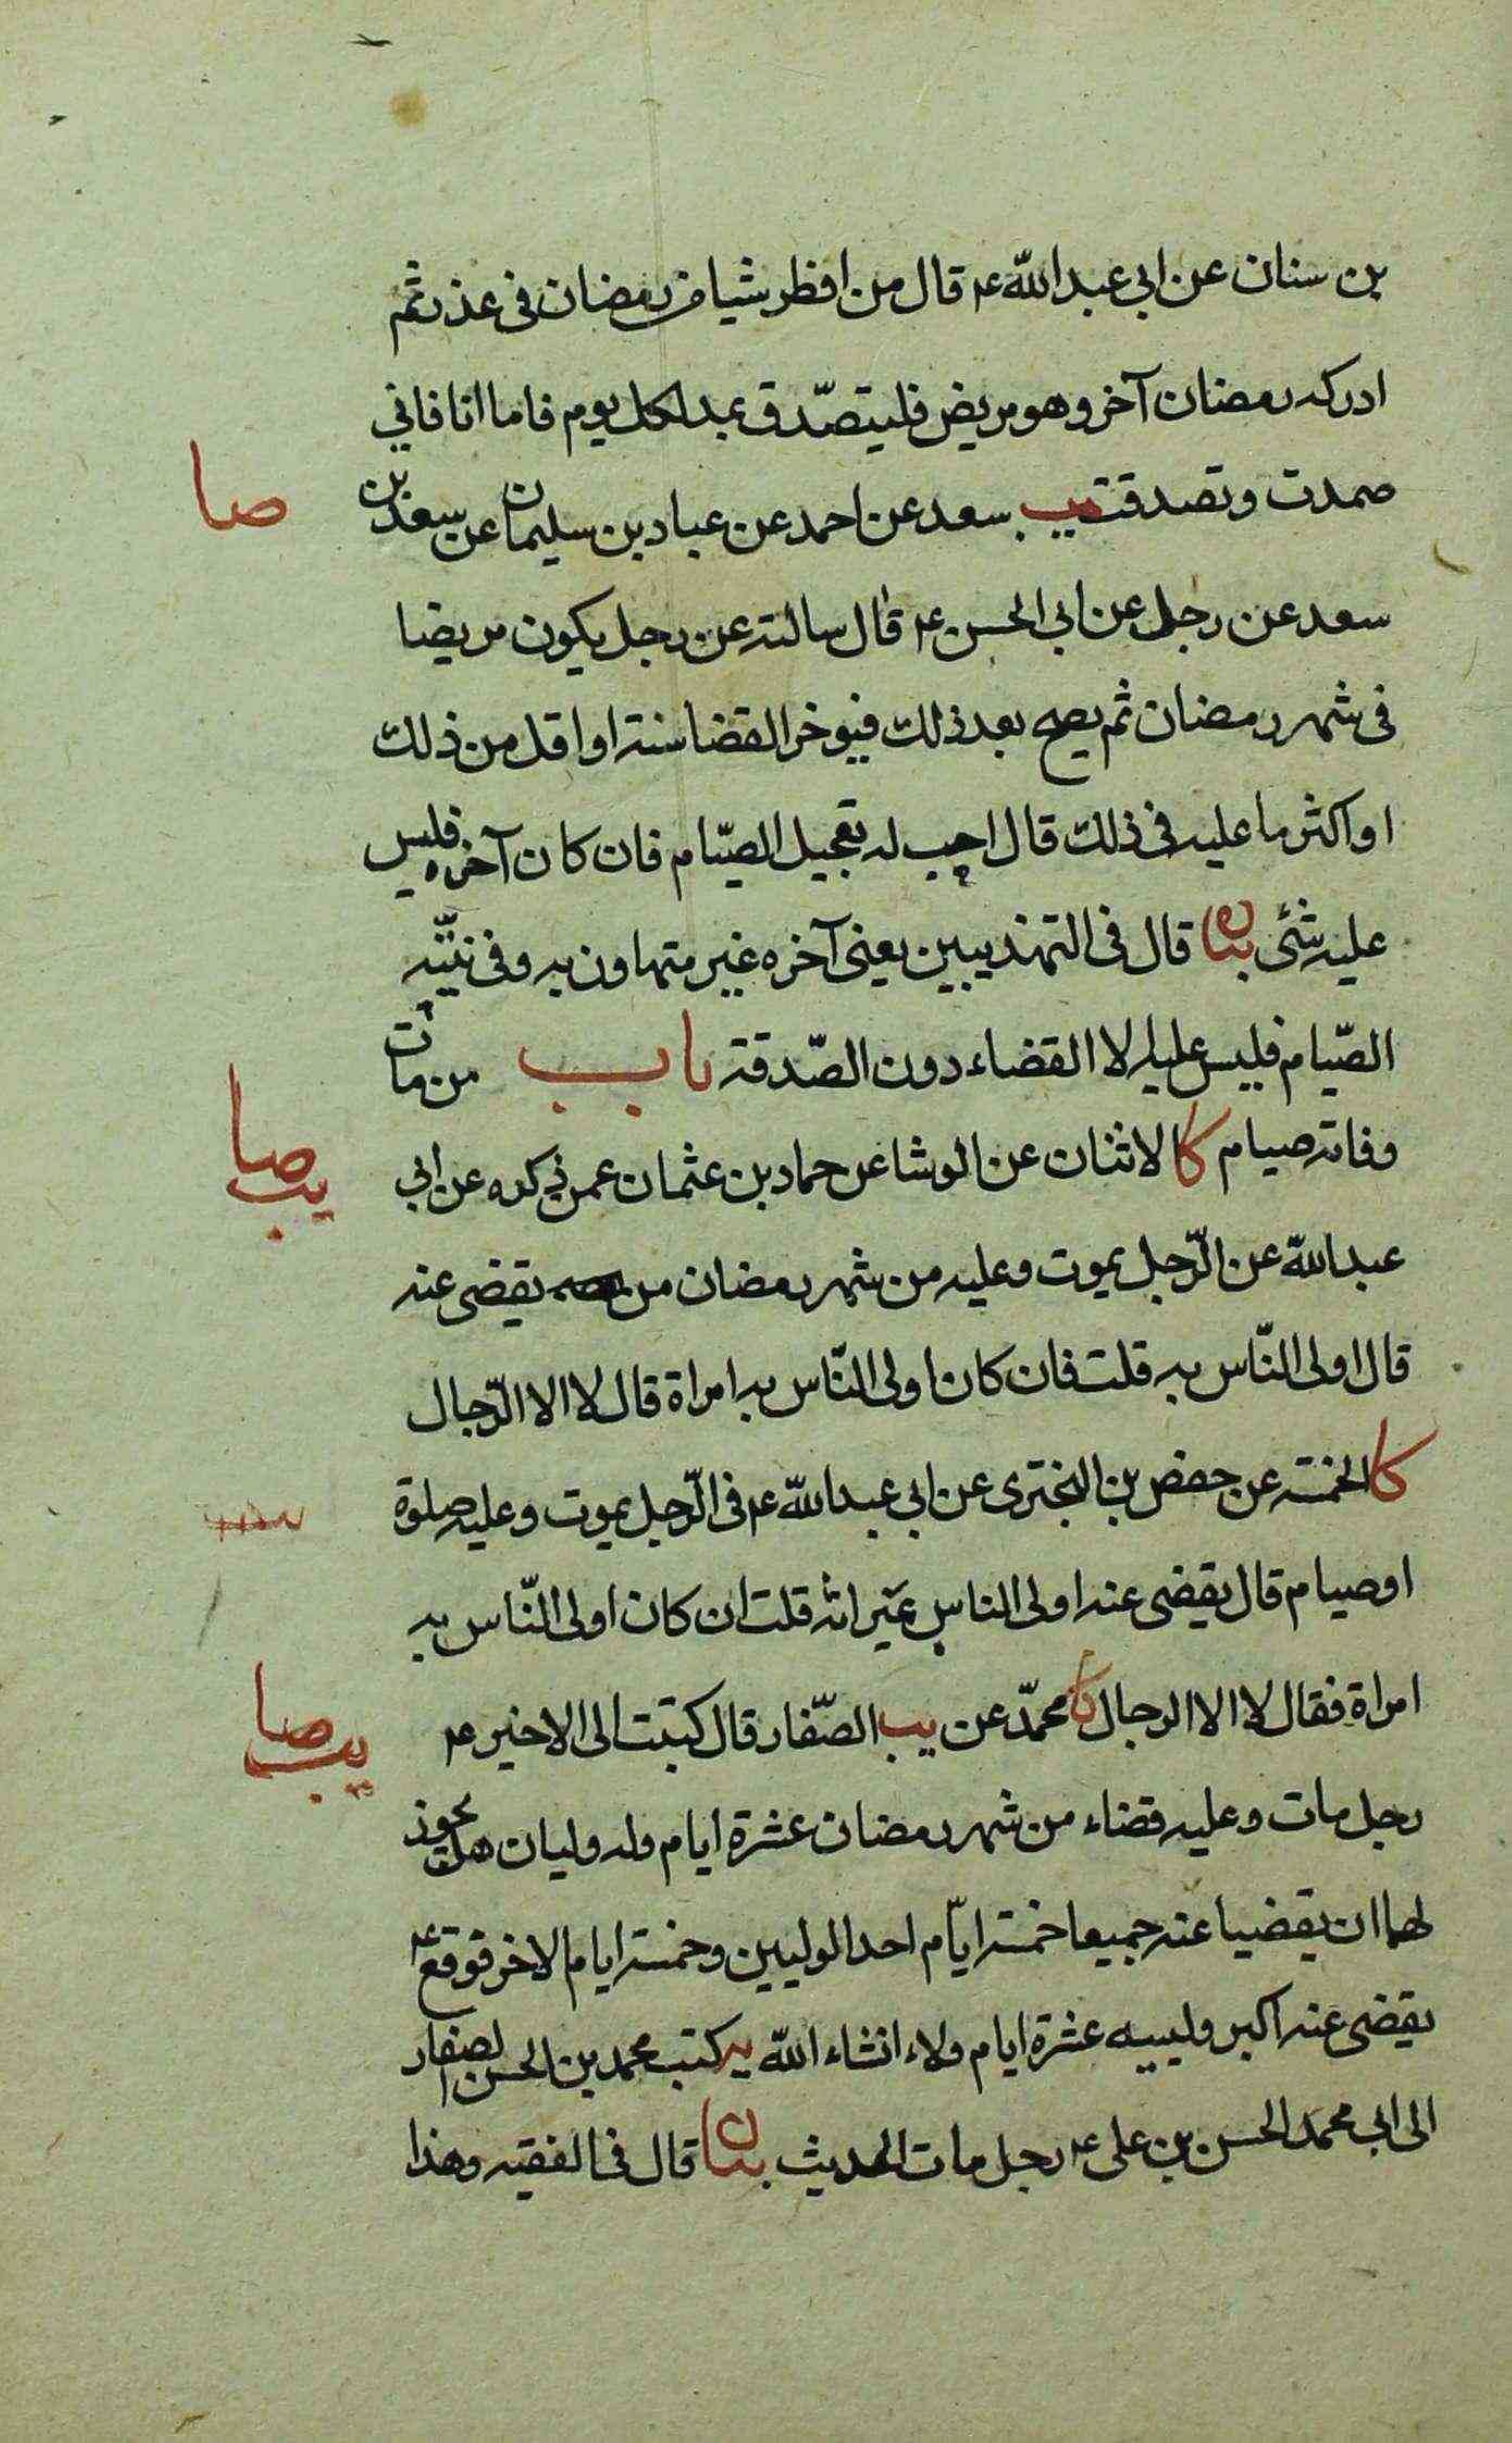 بن سنان عن ابى عبد الله ع قال من افطر شيا من رمضان فى عذر ثم
ادركه رمضان آخر وهو مريض فليتصدق بمد لكل يوم فاما انا فانى
صمت وتصدقت يب سعد عن احمد عن عباد بن سليمان عن سعد بن
صا
سعد عن رجل عن ابى الحسن ع قال سالته عن رجل يكون مريضا
فى شهر رمضان ثم يصح بعد ذلك فيوخر القضا سنة او اقل من ذلك
او اكثر ما عليه فى ذلك قال احب له تعجيل الصيام فان كان آخره فليس
عليه شئ بيان قال فى التهذيبين يعنى آخره غير متهاون به وفى نيته
الصيام فليس عليه الا القضاء دون الصدقة باب من مات
وفاته صيام كا الاثنان عن الوشا عن حماد بن عثمان عمن ذكره عن ابى
يب صا
عبد الله عن الرجل يموت وعليه من شهر رمضان من يقضى عنه
قال اولى الناس به قلت فان كان اولى الناس به امراة قال لا الا الرجال
كا الخمسة عن حفص بن البخترى عن ابى عبد الله ع فى الرجل يموت وعليه صلوة
او صيام قال يقضى عنه اولى الناس بميراثه قلت ان كان اولى الناس به
امراة فقال لا الا الرجال كا محمد عن يب الصفار قال كتبت الى الاخير ع
يب صا
رجل مات وعليه قضاء من شهر رمضان عشرة ايام وله وليان هل يجوز
لهما ان يقضيا عنه جميعا خمسة ايام احد الوليين وخمسة ايام الاخر فوقع ع
يقضى عنه اكبر ولييه عشرة ايام ولاء انشاء الله يه كتب محمد بن الحسن الصفار
الى ابى محمد الحسن بن على ع رجل مات الحديث بيان قال فى الفقيه وهذا